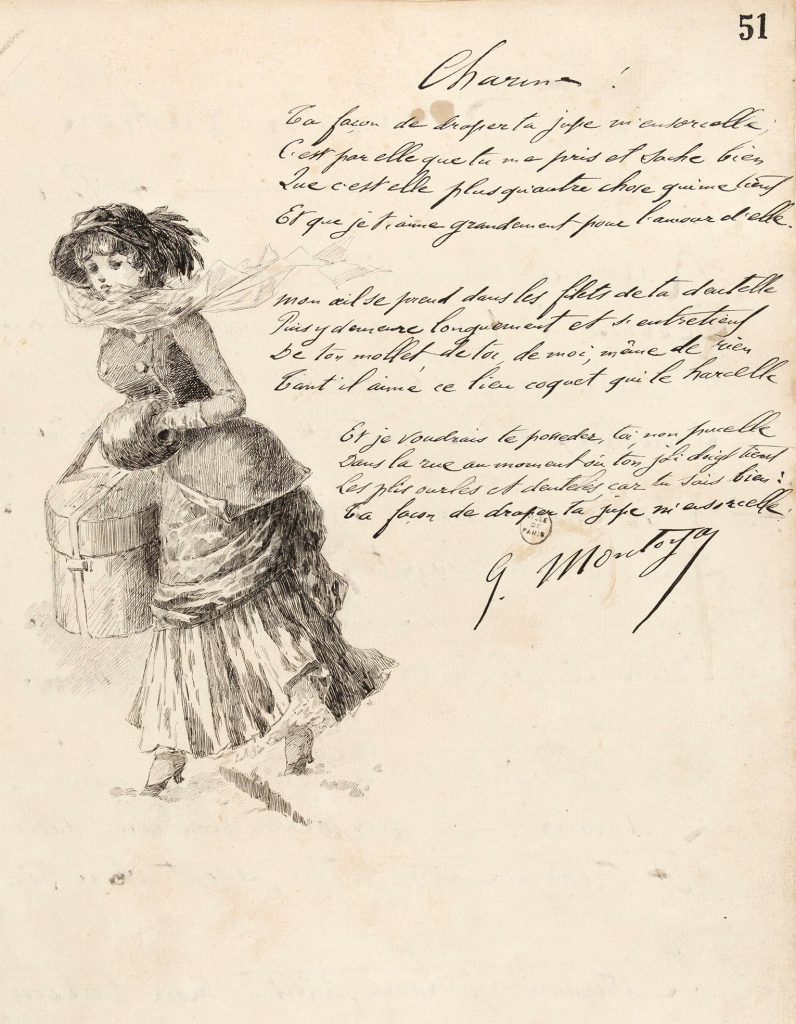 51
Charme !
Ta façon de draper ta jupe m'ensorcelle ;
C'est par elle que tu me pris et sache bien
Que c'est elle plus qu'autre chose qui me tient
Et que je t'aime grandement pour l'amour d'elle.
Mon œil se prend dans les filets de ta dentelle
Puis y demeure longuement et s'entretient
De ton mollet de toi, de moi, même de rien
Tant il aime ce lien coquet qui le harcelle
Et je voudrais te posséder, toi non pucelle
Dans la rue au moment où ton joli doigt tient
Les plis ourlés et dentelés car tu sais bien :
Ta façon de draper ta jupe m'ensorcelle.
VILLE
DE
PARIS
G. Montoya